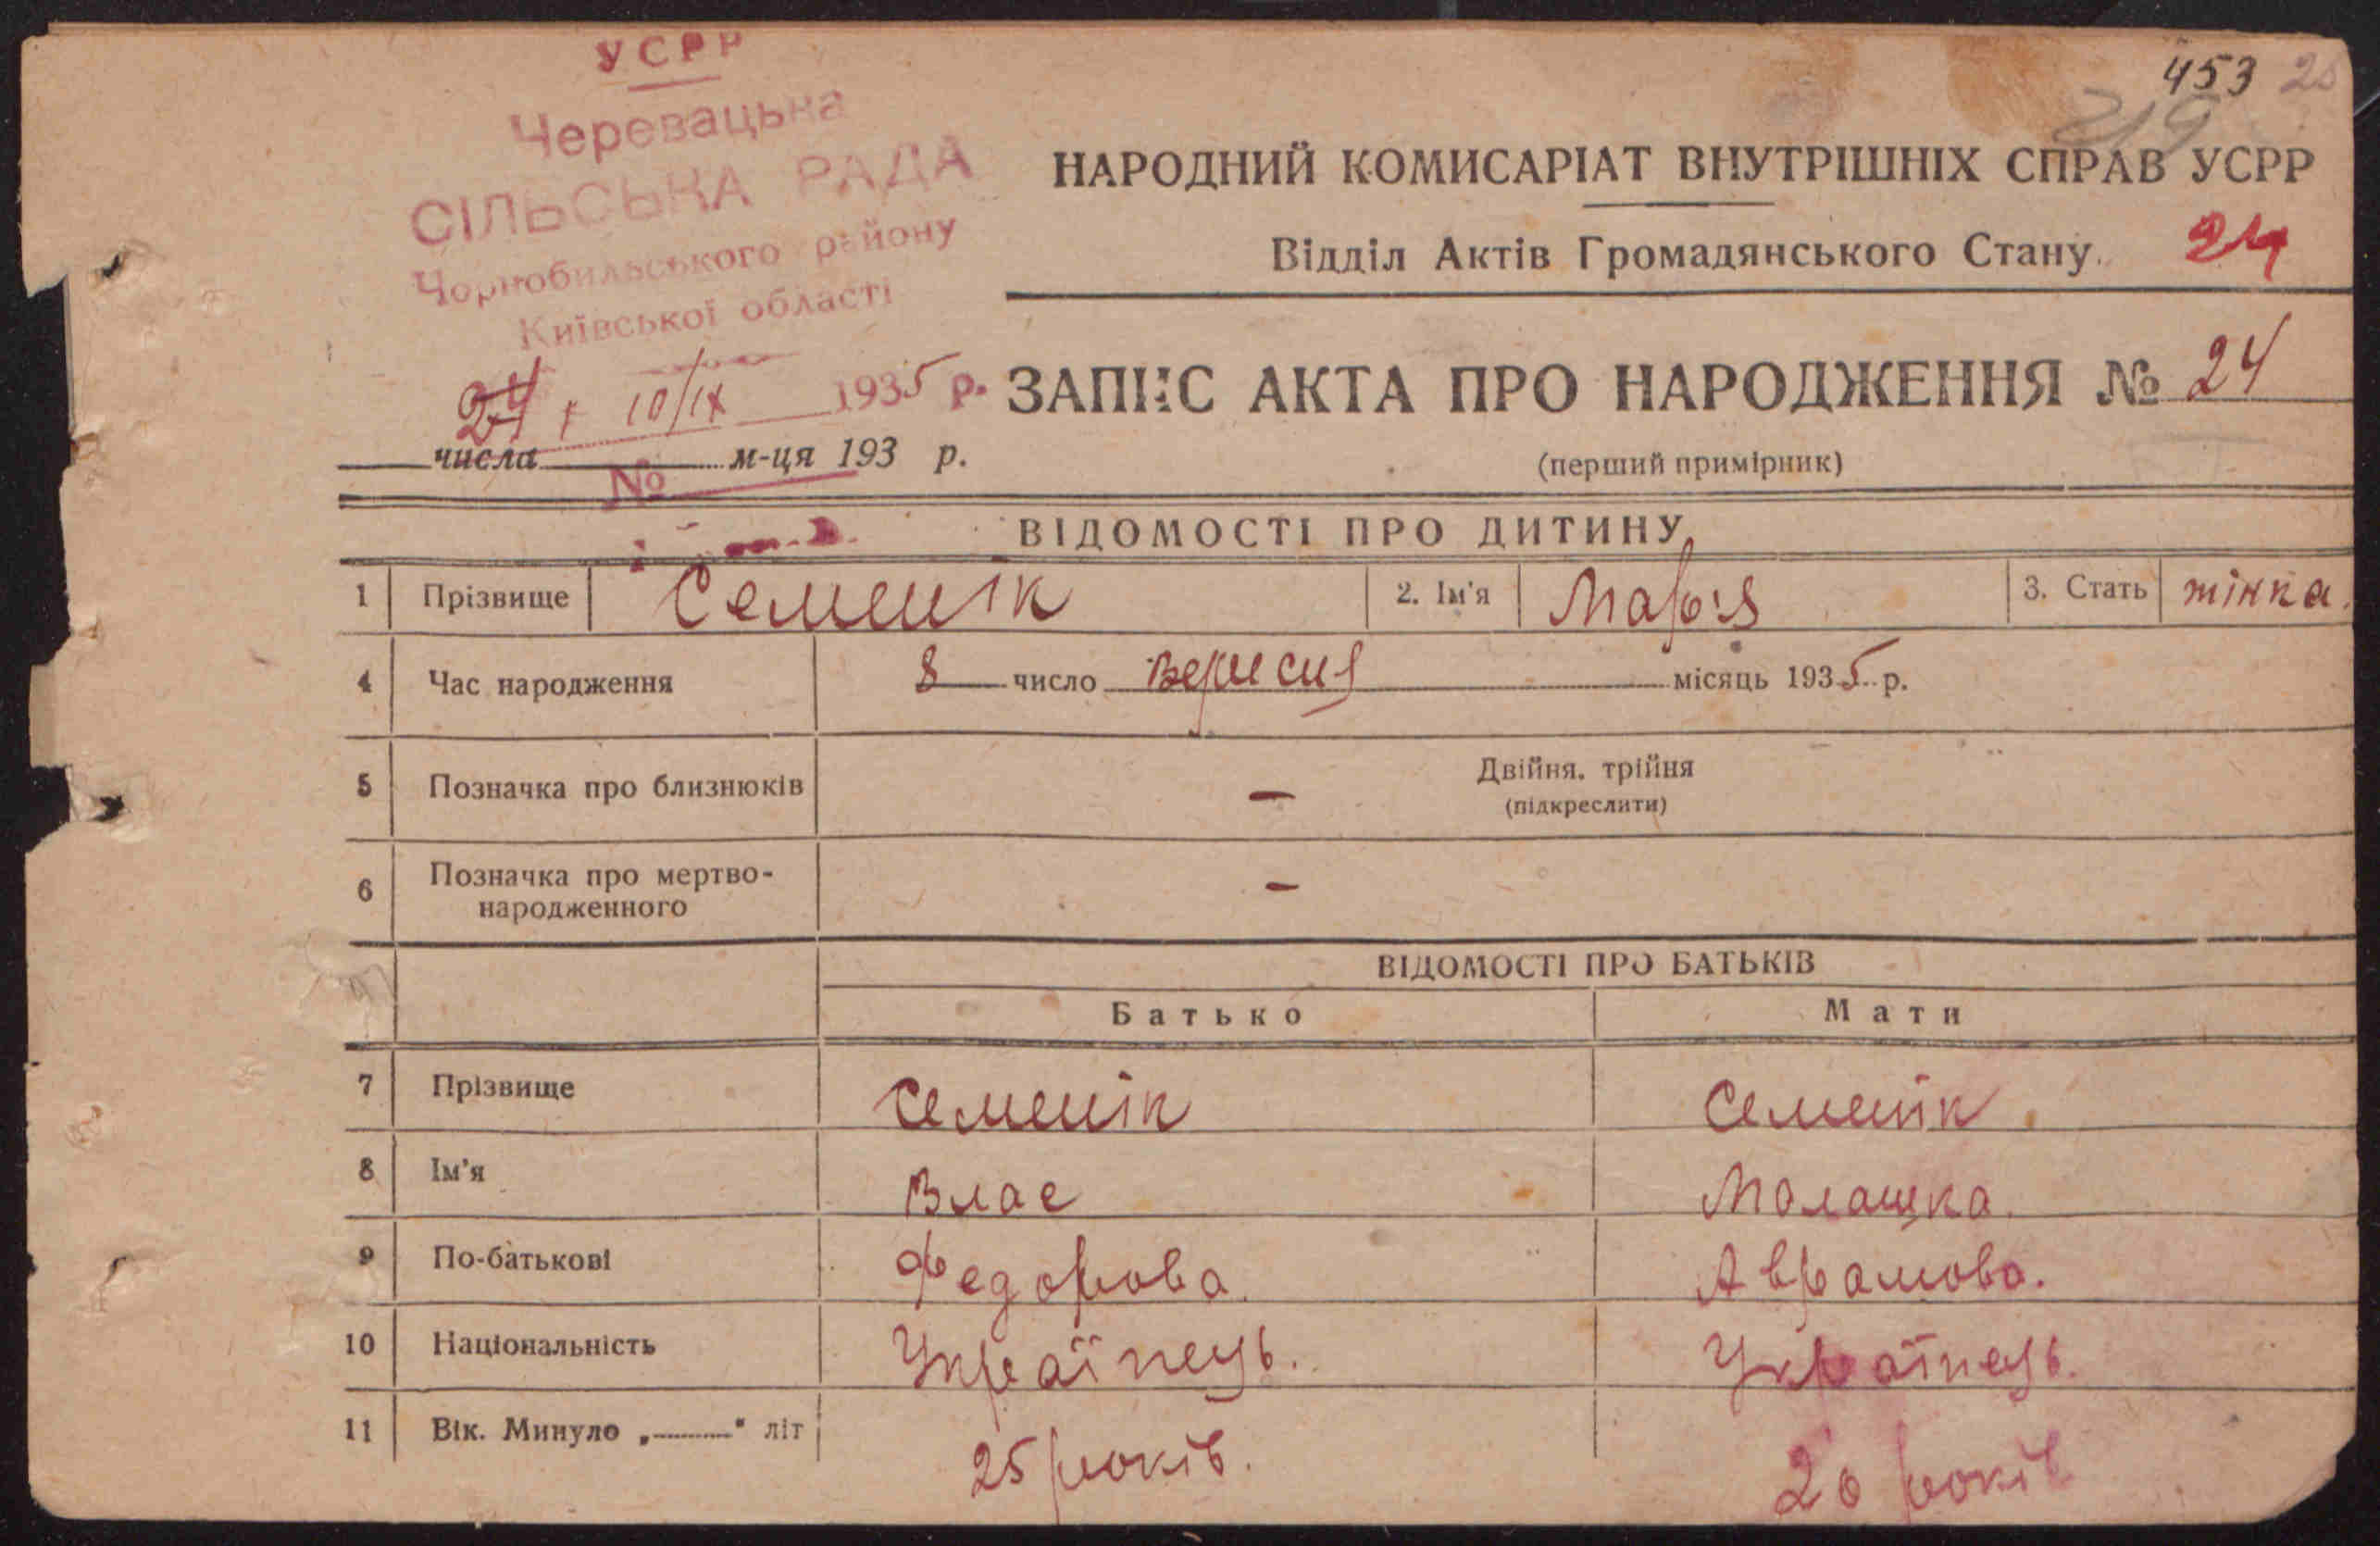 УСРР
Черевацька
СІЛЬСЬКА РАДА
Чорнобильського району
Київської області
24 10/ІХ 1935 р.
числа м-ця 193 р.
№
453
219
НАРОДНИЙ КОМИСАРІАТ ВНУТРІШНІХ СПРАВ УСРР
Відділ Актів Громадянського Стану. 24
ЗАПИС АКТА ПРО НАРОДЖЕННЯ № 24
(перший примірник)
ВІДОМОСТІ ПРО ДИТИНУ
1 Прізвище Семенік 2. Ім'я Марія 3. Стать жінка.
4 Час народження 8 число вересня місяць 1935 р.
5 Позначка про близнюків — Двійня. трійня
(підкреслити)
6 Позначка про мертво-
народженного —
ВІДОМОСТІ ПРО БАТЬКІВ
Батько Мати
7 Прізвище Семенік Семенік.
8 Ім'я Влас Малашка.
9 По-батькові Федорова. Аврамова.
10 Національність Українець. Українець.
11 Вік. Минуло „——" літ 25 років. 20 років